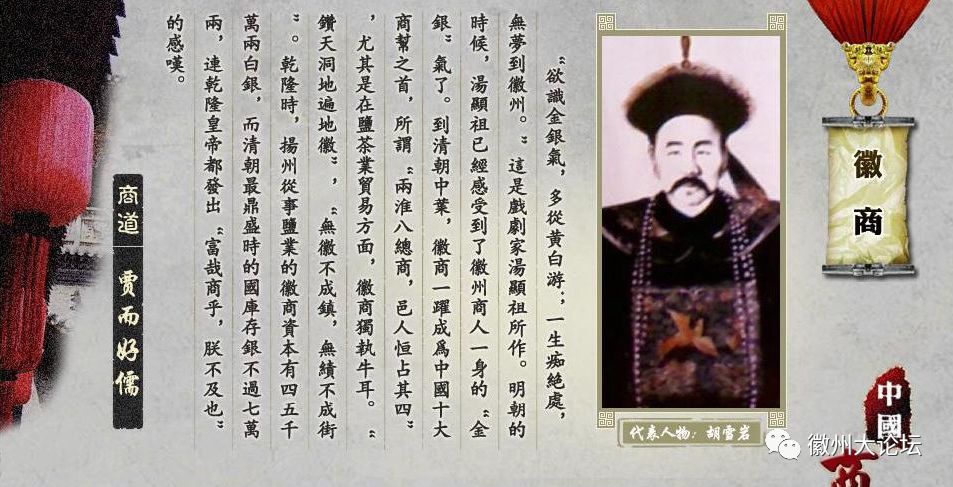 徽商
“欲識金銀氣，多從黄白游；一生痴絶處，
無夢到徽州。”這是戲劇家湯顯祖所作。明朝的
時候，湯顯祖已經感受到了徽州商人一身的“金
銀”氣了。到清朝中葉，徽商一躍成爲中國十大
商幫之首，所謂“兩淮八總商，邑人恒占其四”
，尤其是在鹽茶業貿易方面，徽商獨執牛耳。“
鑽天洞地遍地徽”，“無徽不成鎮，無績不成街
”。乾隆時，揚州從事鹽業的徽商資本有四五千
萬兩白銀，而清朝最鼎盛時的國庫存銀不過七萬
兩，連乾隆皇帝都發出“富哉商乎，朕不及也”
的感嘆。
商道
賈而好儒
代表人物：胡雪岩
中國
商
徽州大论坛